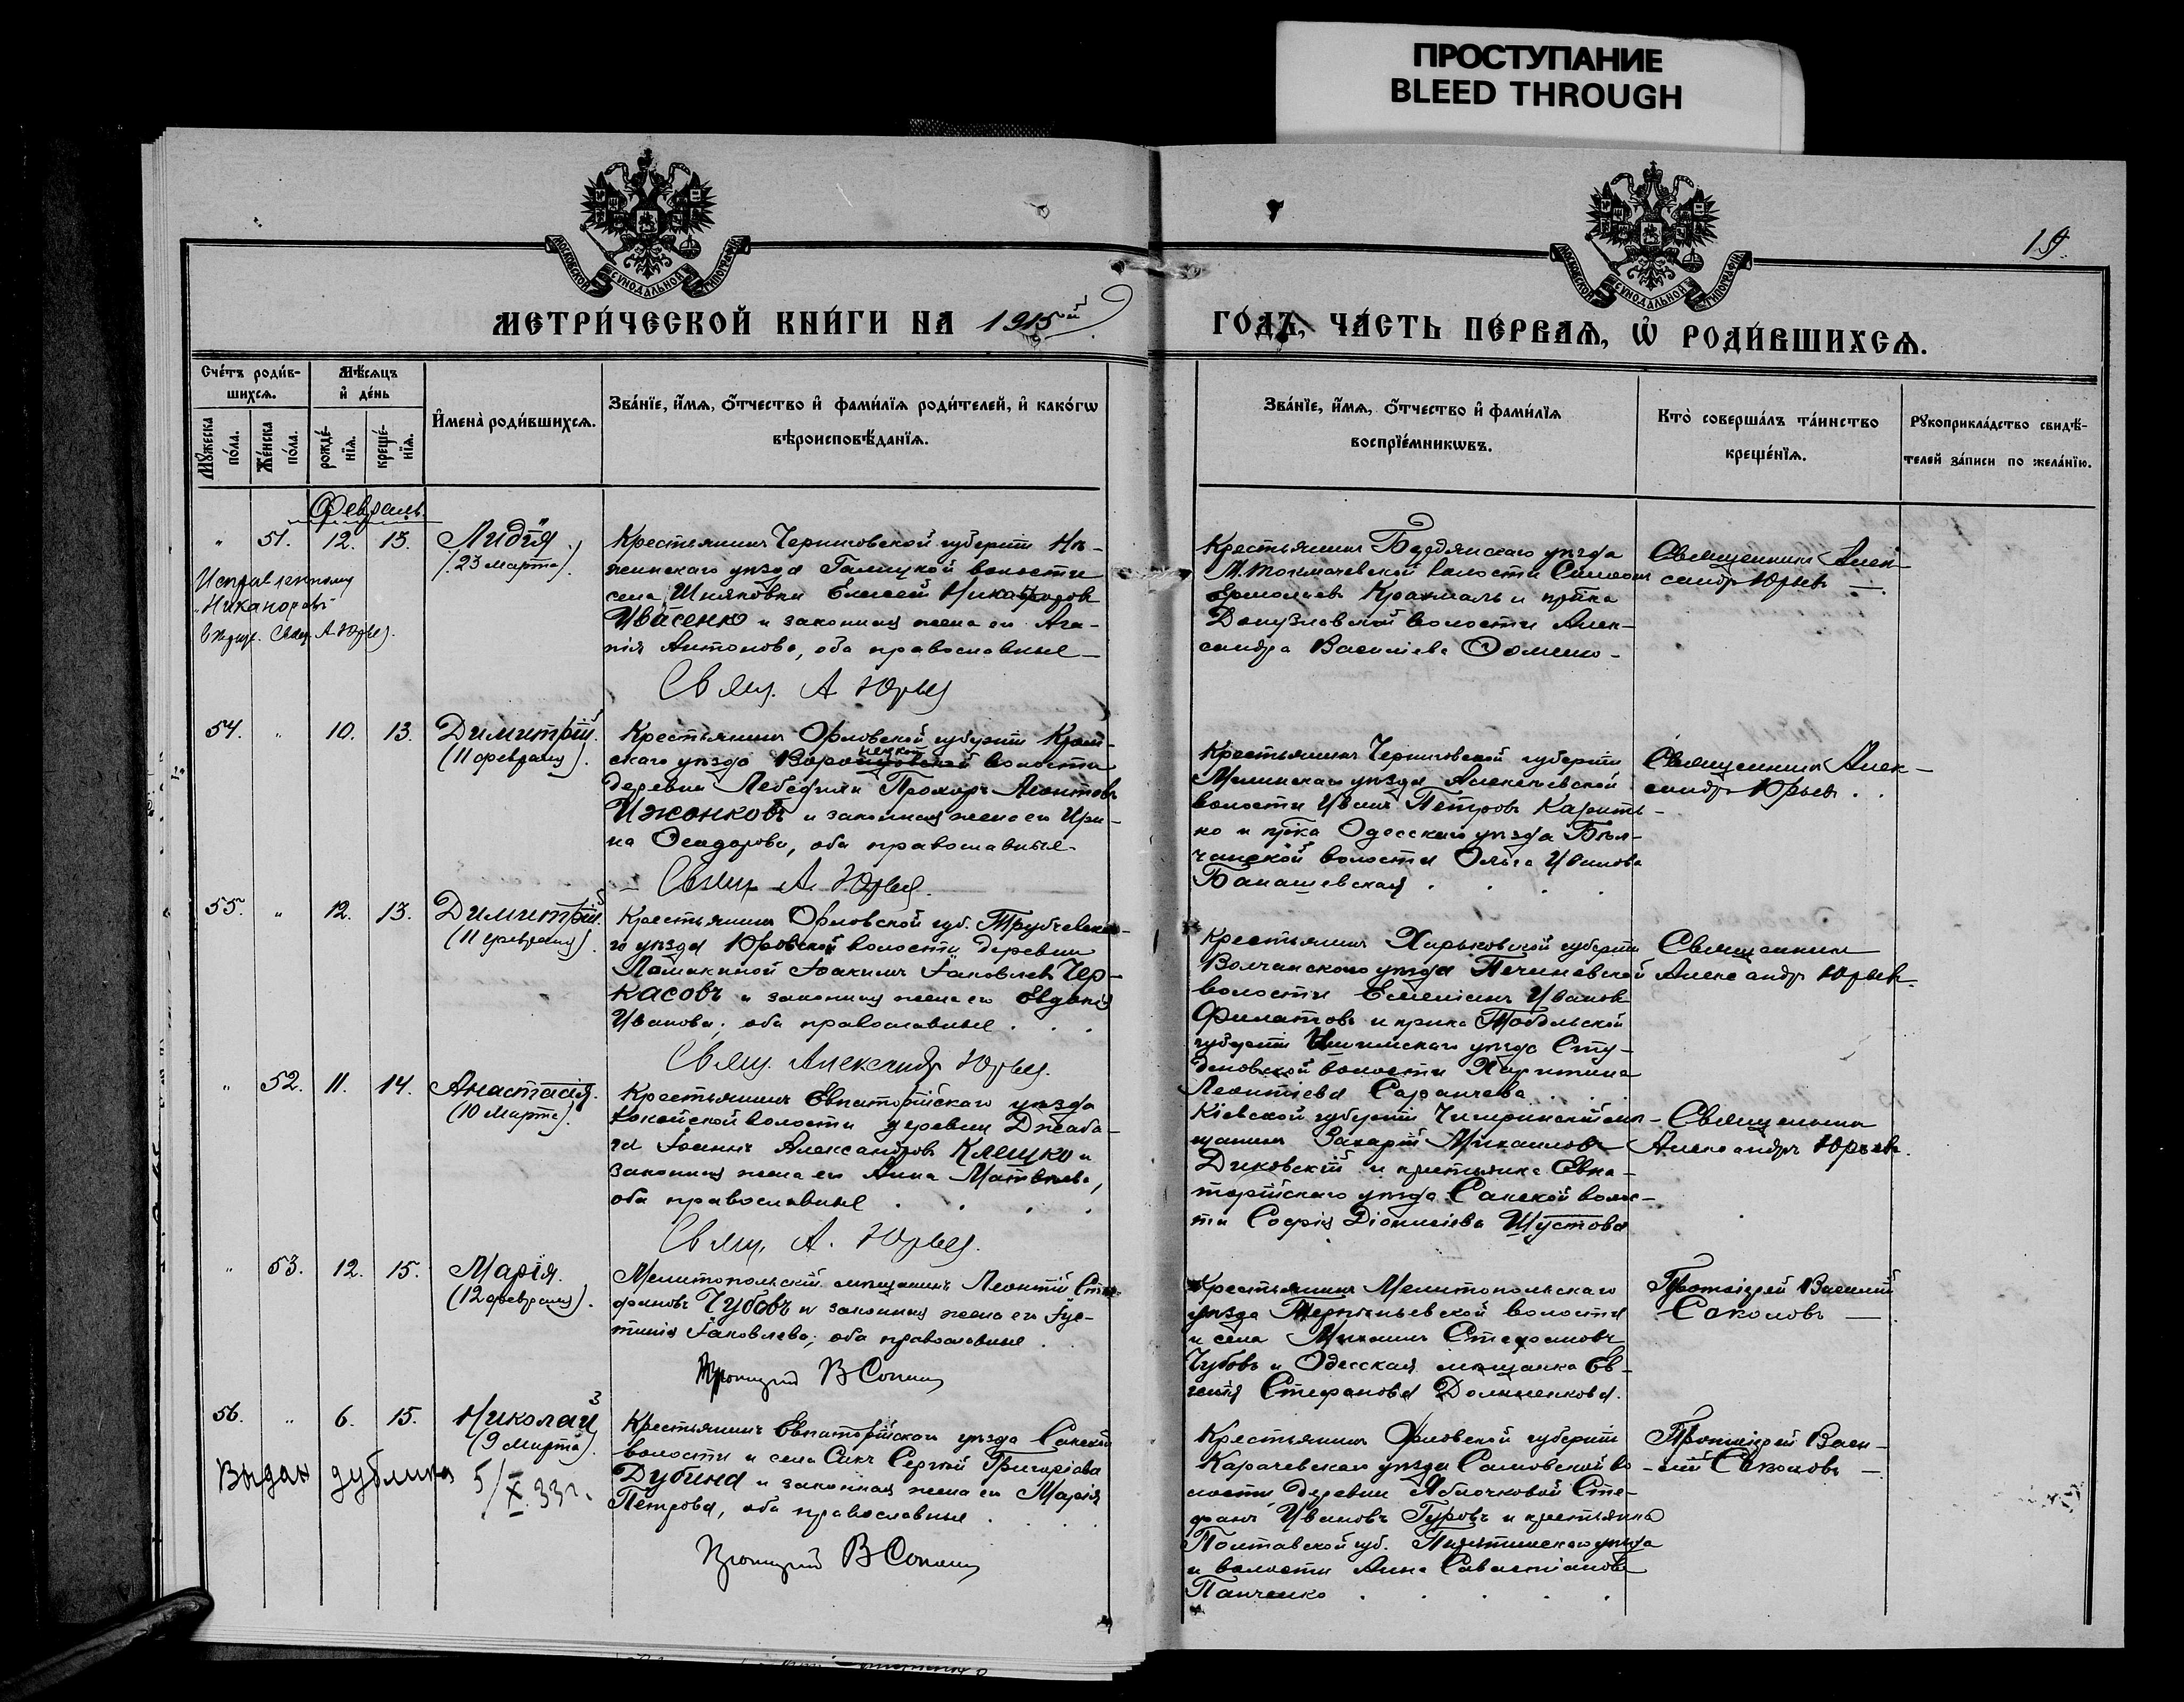 ПРОСТУПАНИЕ
BLEED THROUGH
19.
МОСКОВСКОЙ СѴНОДАЛЬНОЙ ТИПОГРАФІИ
МОСКОВСКОЙ СѴНОДАЛЬНОЙ ТИПОГРАФІИ
МЕТРИ́ЧЕСКОЙ КНИ́ГИ НА 1915ый
ГО́ДЪ, ЧА́СТЬ ПЕ́РВАѦ, Ѡ҆ РОДИ́ВШИХСѦ.
Сче́тъ роди́в-
шихсѧ.
Мѣ́сѧцъ
и҆ де́нь
И҆мена̀ роди́вшихсѧ.
Зва́нїе, и҆́мѧ, ѻ҆́тчество и҆ фами́лїѧ роди́телей, и҆ како́гѡ
вѣроисповѣ́данїѧ.
Мꙋ́жеска
по́ла.
Же́нска
по́ла.
рожде́-
нїѧ.
креще́-
нїѧ.
Зва́нїе, и҆́мѧ, ѻ҆́тчество и҆ фами́лїѧ
воспрїе́мникѡвъ.
Кто̀ соверша́лъ та́инство
креще́нїѧ.
Рꙋкоприкла́дство свидѣ́-
телей за́писи по жела́нїю.
Февраль.
" 51. 12. 13. Лидія
(23 марта).
Исправленному
"Никаноровъ"
Свящ. А Юрьев.
Крестьянинъ Черниговской губерніи Нѣ-
жинскаго уѣзда Галицкой волости
села Шняковки Елисей Никаноровъ
Ивасенко и законная жена его Ага-
пія Антонова, оба православные —
Свящ. А Юрьев
Крестьянинъ Бердянскаго уѣзда
М. Токмачевской волости Симеонъ
Ермолаевъ Крахмаль и кр-ка
Донузлавской волости Алек-
сандра Васильева Фоменко -
Священникъ Алек-
сандръ Юрьевъ —
54. " 10. 13. Димитрій.
(11 февраля).
Крестьянинъ Орловской губерніи Кром-
скаго уѣзда волости
деревни Лебедики Прохоръ Леонтовъ
Ижонковъ и законная жена его Ири-
на Ѳеодорова, оба православные.
— Свящ А. Юрьев.
Крестьянинъ Черниговской губерніи
Мглинскаго уѣзда Алексеевской
волости Иванъ Петровъ
ко и кр-ка Одесскаго уѣзда Бѣл-
чанской волости Ольга Иванова
Банашевская . . .
Священникъ Алек-
сандръ Юрьевъ . .
55. " 12. 13. Димитрій.
(11 февраля).
Крестьянинъ Орловской губ. Трубчевска-
го уѣзда Юровской волости деревни
Ломакиной Іоакимъ Іаковлевъ Чер-
касовъ и законная жена его Евдокія
Иванова; оба православные . . .
Свящ. Александр Юрьев.
Крестьянинъ Харьковской губерніи
Волчанскаго уѣзда Печеневской
волости Емеліанъ Ивановъ
Филатовъ и кр-ка Тобольской
губерніи Ишимскаго уѣзда Сту-
деновской волости Харитина
Леонтіева Саранчева . . .
Священникъ
Александръ Юрьевъ.
" 52. 11. 14. Анастасія.
(10 Марта).
Крестьянинъ Евпаторійскаго уѣзда
волости деревни Джаба-
га Іоаннъ Александровъ Клешко и
законная жена его Анна Матвѣева,
оба православные . . . .
Свящ. А. Юрьев.
Кіевской губерніи Чигиринскій мѣ-
щанинъ Захарій Михаиловъ
Диковскій и крестьянка Евпа-
торійскаго уѣзда Сакской волос-
ти Софія Діонисіева Шустова
Священникъ
Александръ Юрьевъ.
" 53. 12. 15. Марія.
(12 февраля).
Мелитопольскій мѣщанинъ Леонтій Сте-
фановъ Чубовъ и законная жена его Іус-
тинія Іаковлева; оба православные . .
Протоіерей В Соколов
Крестьянинъ Мелитопольскаго
уѣзда Терпѣньевской волости
и села Михаилъ Стефановъ
Чубовъ и Одесская мѣщанка Ев-
генія Стефанова Долженкова.
Протоіерей Василій
Соколовъ —.
56. " 6. 15. Николай
(9 Марта).
Выдан дубликат 5/X 33 г.
Крестьянинъ Евпаторійскаго уѣзда Сакской
волости и села Саки Сергій Григоріевъ
Дубина и законная жена его Марія
Петрова, оба православные . . .
Протоіерей В Соколов
Крестьянинъ Орловской губерніи
Карачевскаго уѣзда Самовской во-
лости деревни Яблочковой Сте-
фанъ Ивановъ Гуровъ и крестьянка
Полтавской губ. Пирятинскаго уѣзда
и волости Анна Савастіанова
Панченко . . . .
Протоіерей Васи-
лій Соколовъ —.